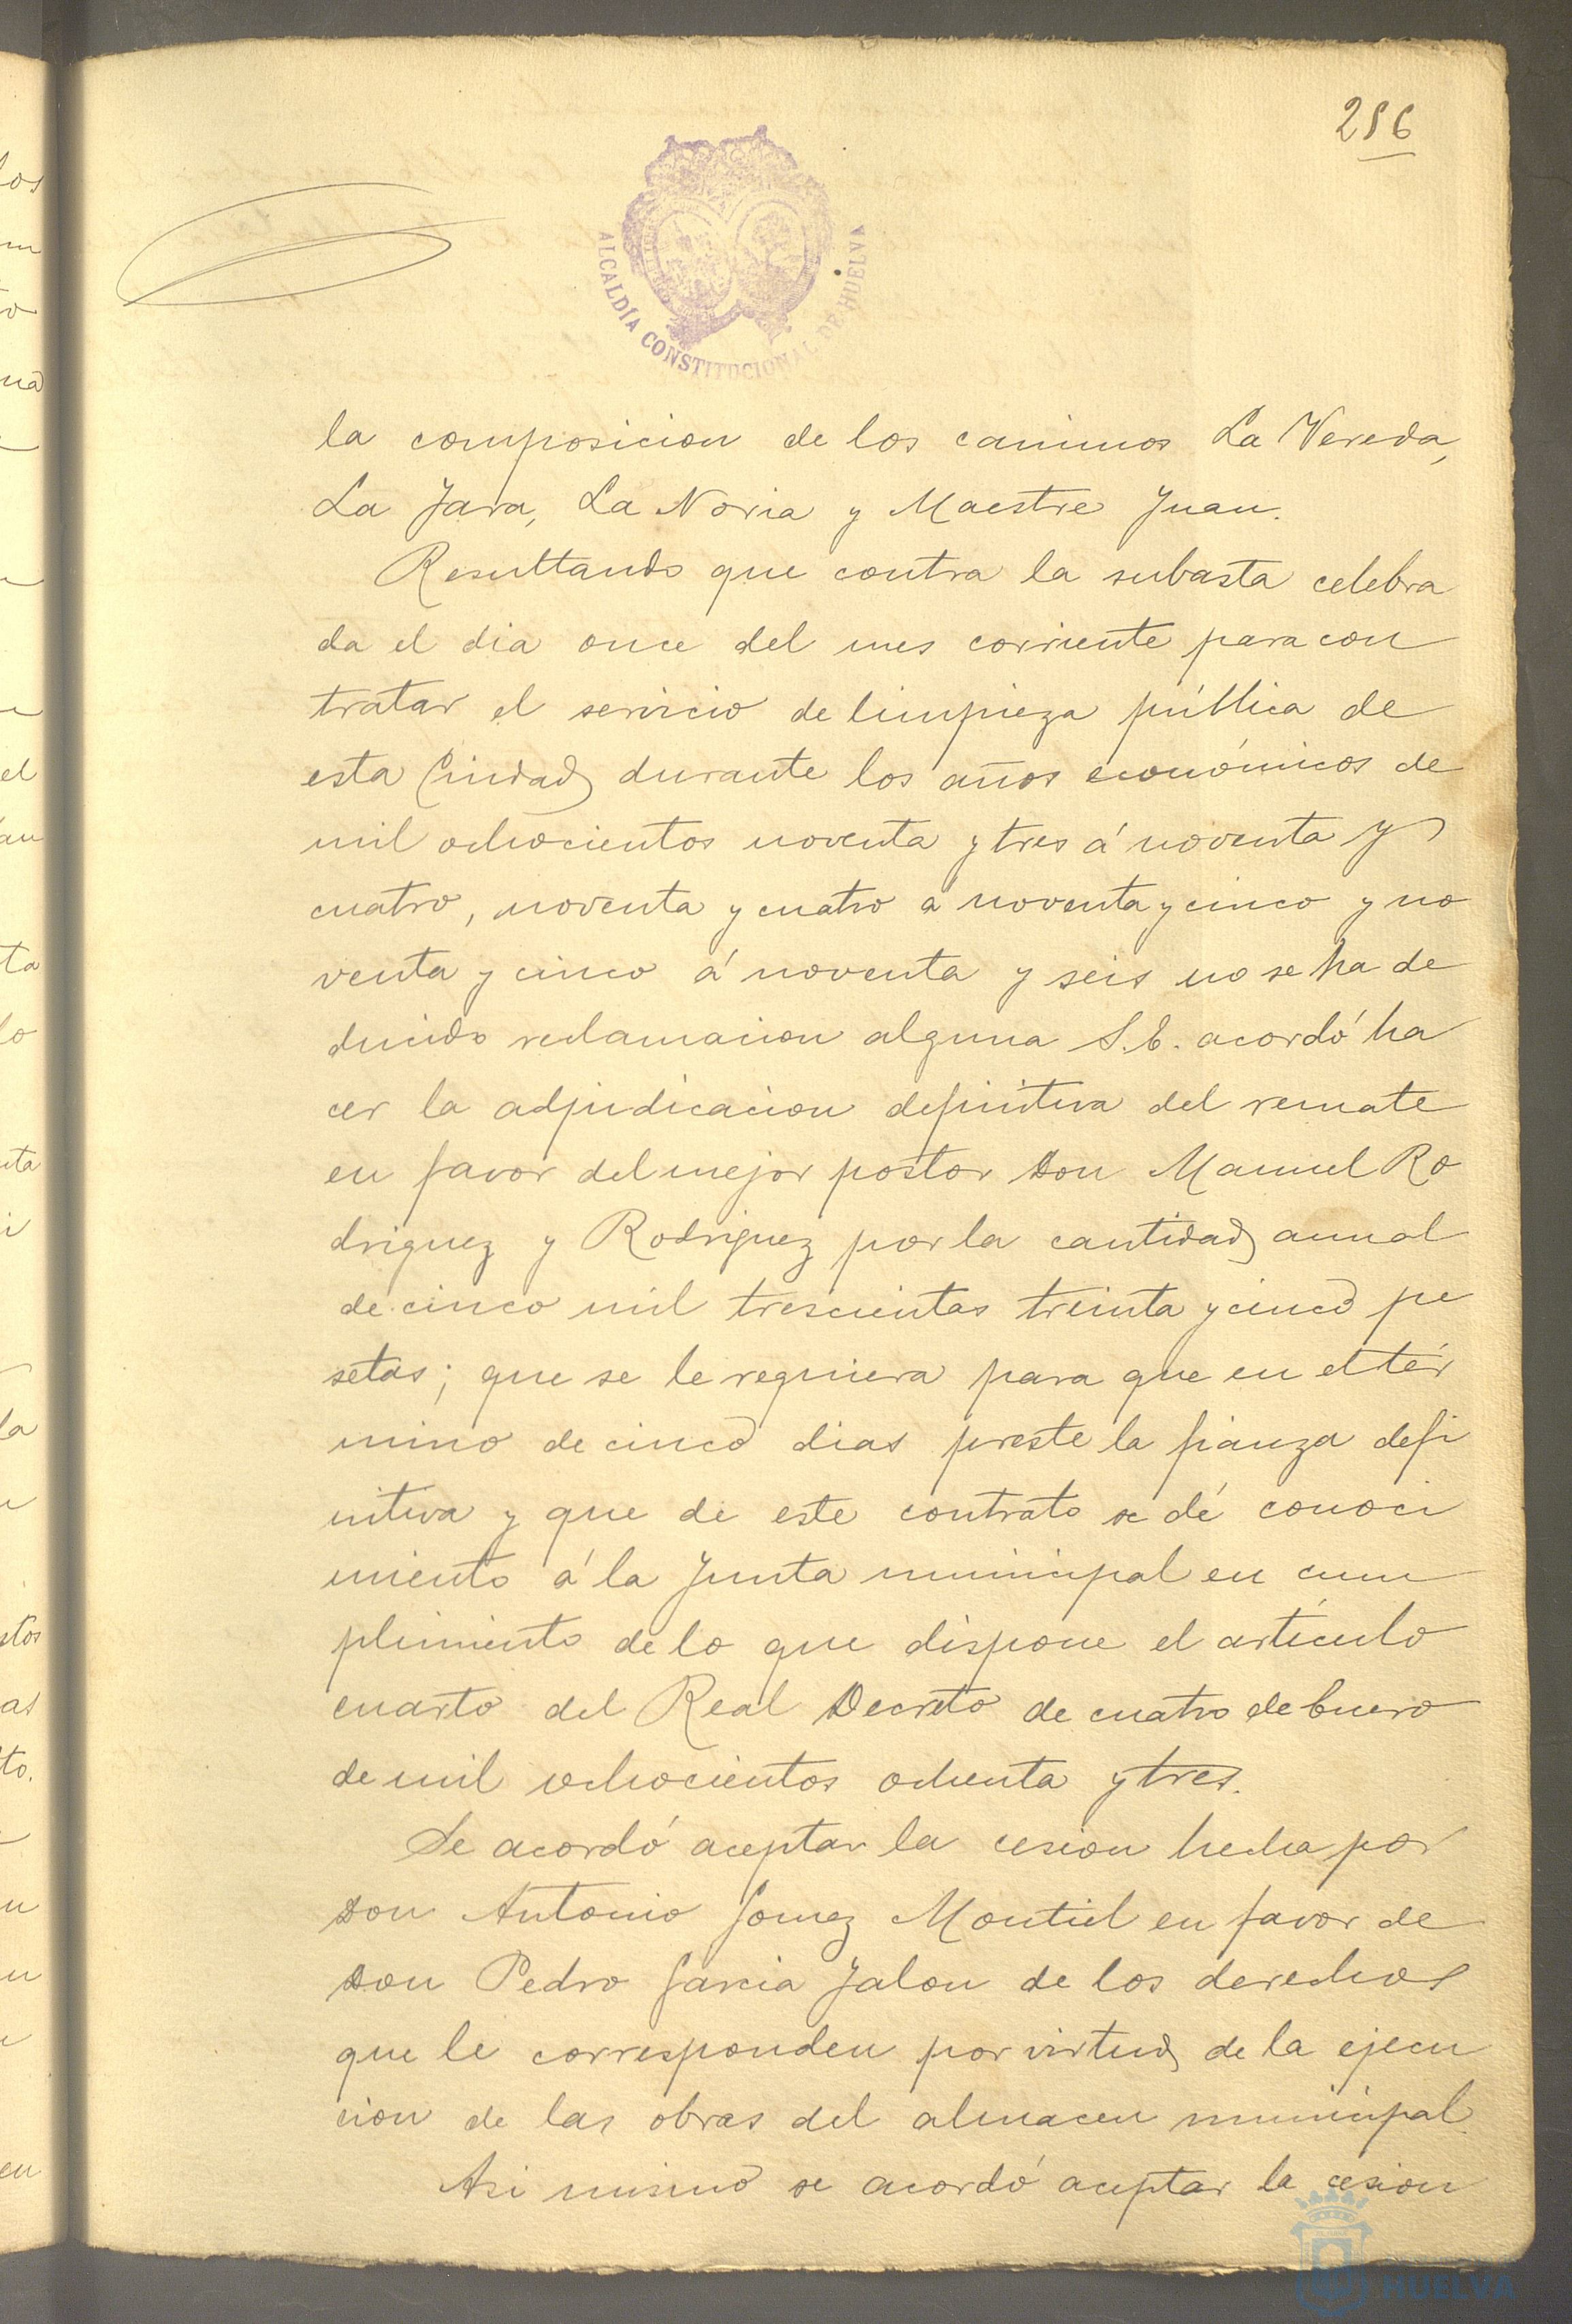 286
ALCALDÍA CONSTITUCIONAL DE HUELVA
la composicion de los caminos La Vereda,
La Jara, La Noria y Maestre Juan.
Resultando que contra la subasta celebra
da el dia once del mes corriente para con
tratar el servicio de limpieza pública de
esta Ciudad durante los años económicos de
mil ochocientos noventa y tres á noventa y
cuatro, noventa y cuatro á noventa y cinco y no
venta y cinco á noventa y seis no se ha de
ducido reclamacion alguna S.E. acordó ha
cer la adjudicacion definitiva del remate
en favor del mejor postor Don Manuel Ro
driguez y Rodriguez por la cantidad anual
de cinco mil trescientas treinta y cinco pe
setas; que se le requiera para que en el tér
mino de cinco dias preste la fianza defi
nitiva y que de este contrato se dé conoci
miento á la Junta municipal en cum
plimiento de lo que dispone el artículo
cuarto del Real Decreto de cuatro de Enero
de mil ochocientos ochenta y tres.
Se acordó aceptar la cesion hecha por
Don Antonio Gomez Montiel en favor de
Don Pedro Garcia Jalon de los derechos
que le corresponden por virtud de la ejecu
cion de las obras del almacen municipal.
Asi mismo se acordó aceptar la cesion
HUELVA